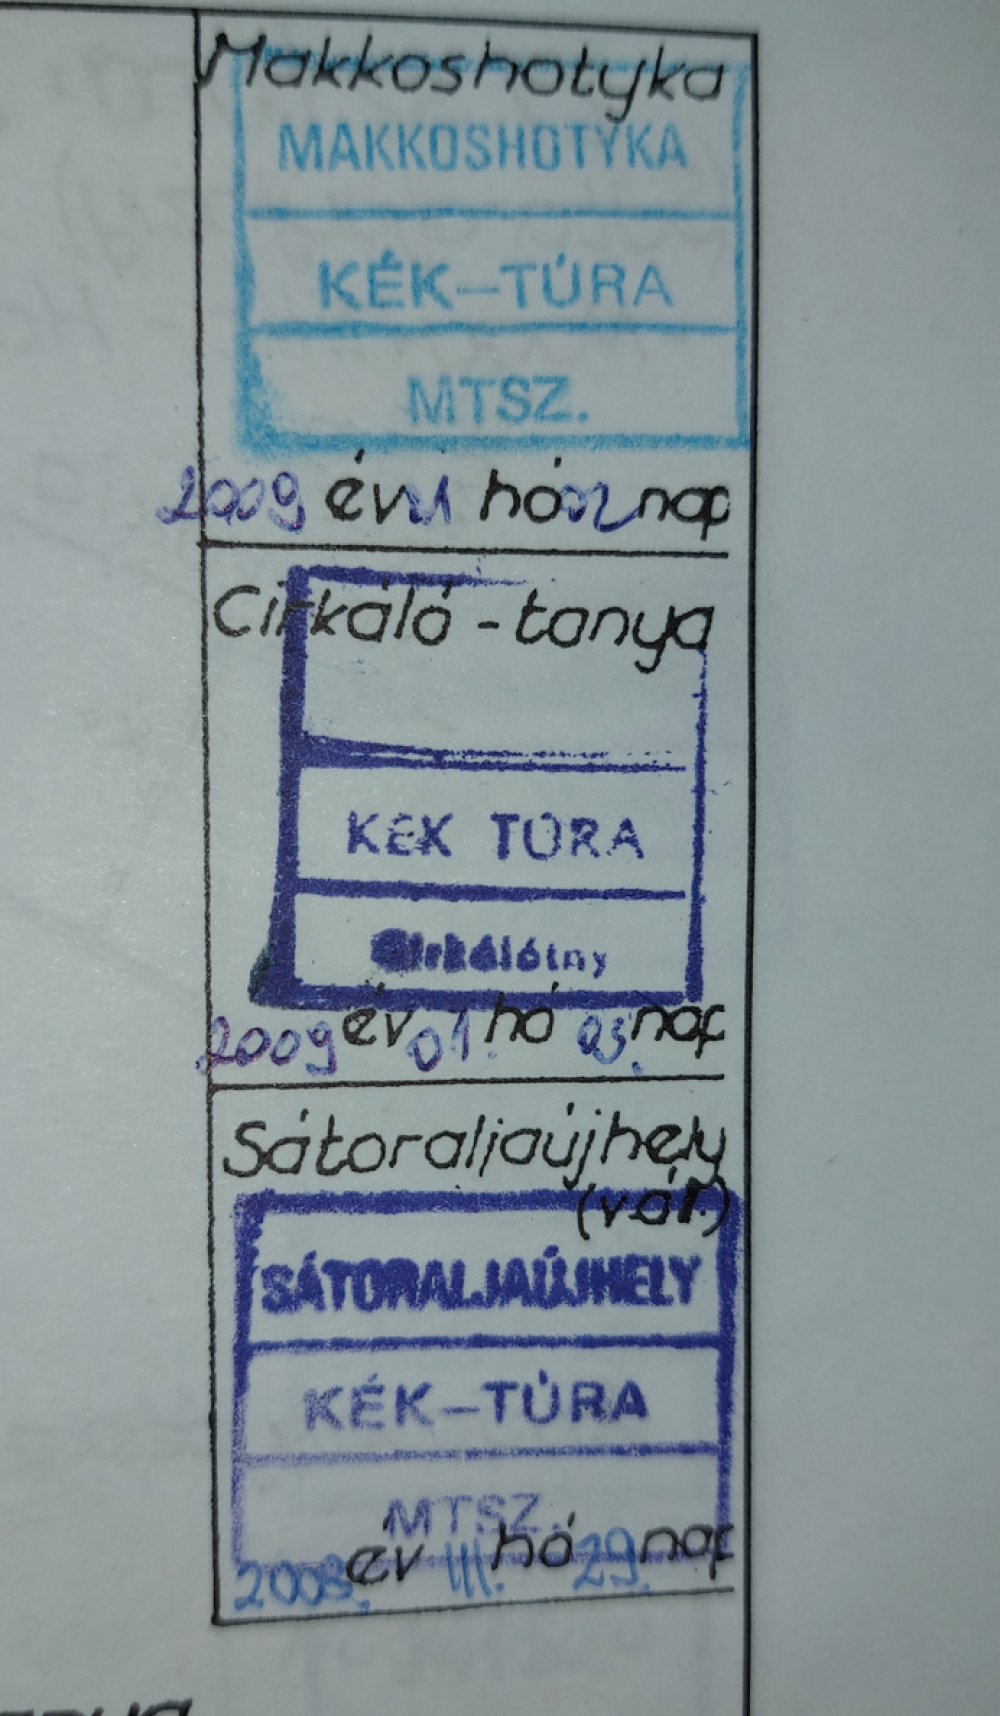 Makkoshotyka
MAKKOSHOTYKA
KÉK–TÚRA
MTSZ.
2009 év hó nap
Cirkáló-tanya
KÉK TÚRA
Cirkálótny
2009 év 01. hó 03. nap
Sátoraljaújhely
(vár.)
SÁTORALJAÚJHELY
KÉK–TÚRA
MTSZ.
2008. év III. hó 29. nap